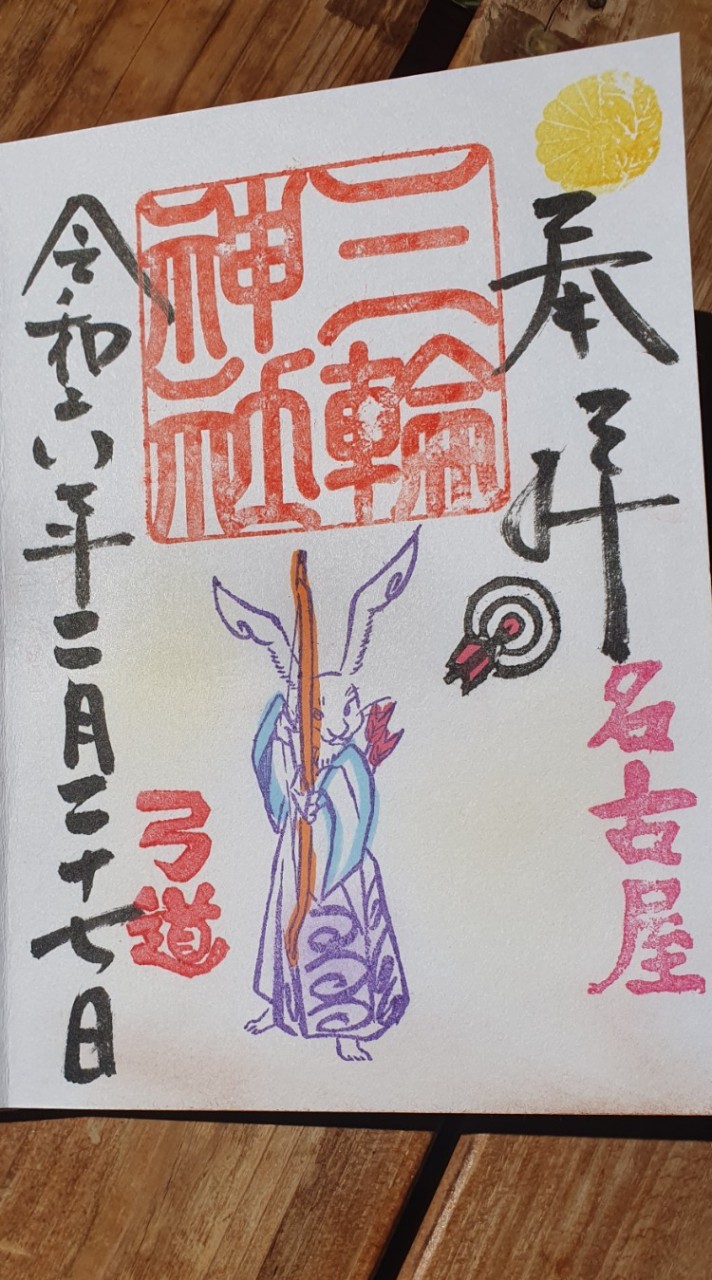 奉拝
名古屋
三輪
神社
弓道
令和六年二月二十七日